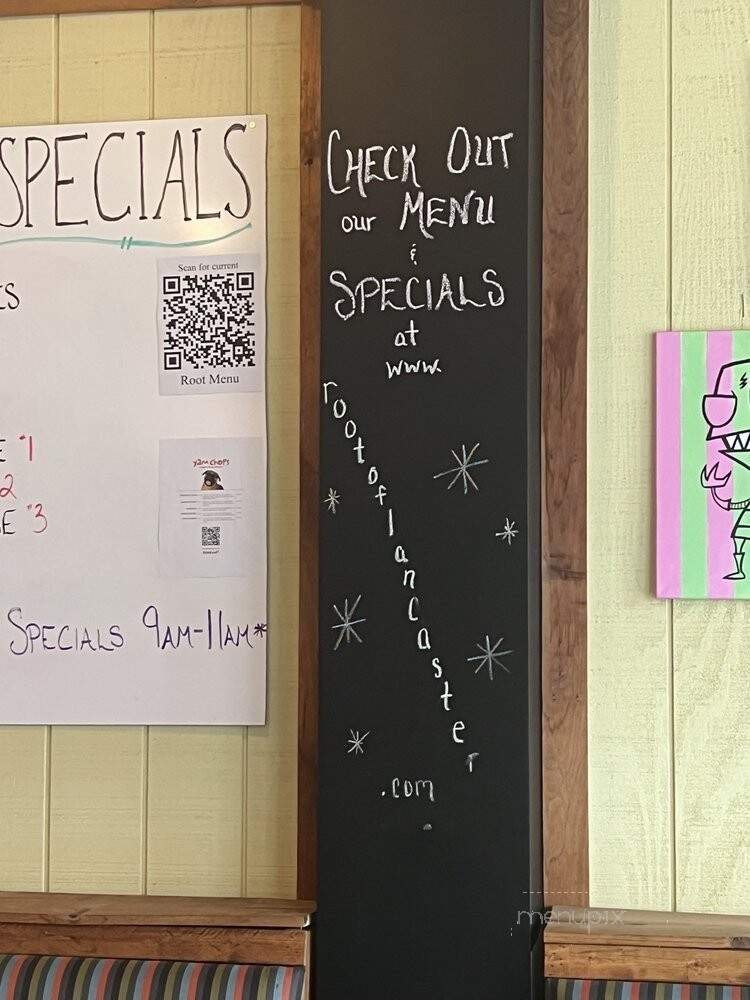 SPECIALS
Scan for current
Root Menu
ES
E #1
2
E #3
YAM CHOPS
SPECIALS 9AM-11AM*
CHECK OUT
our MENU
&
SPECIALS
at
www.
rootoflancaster
.com
menupix